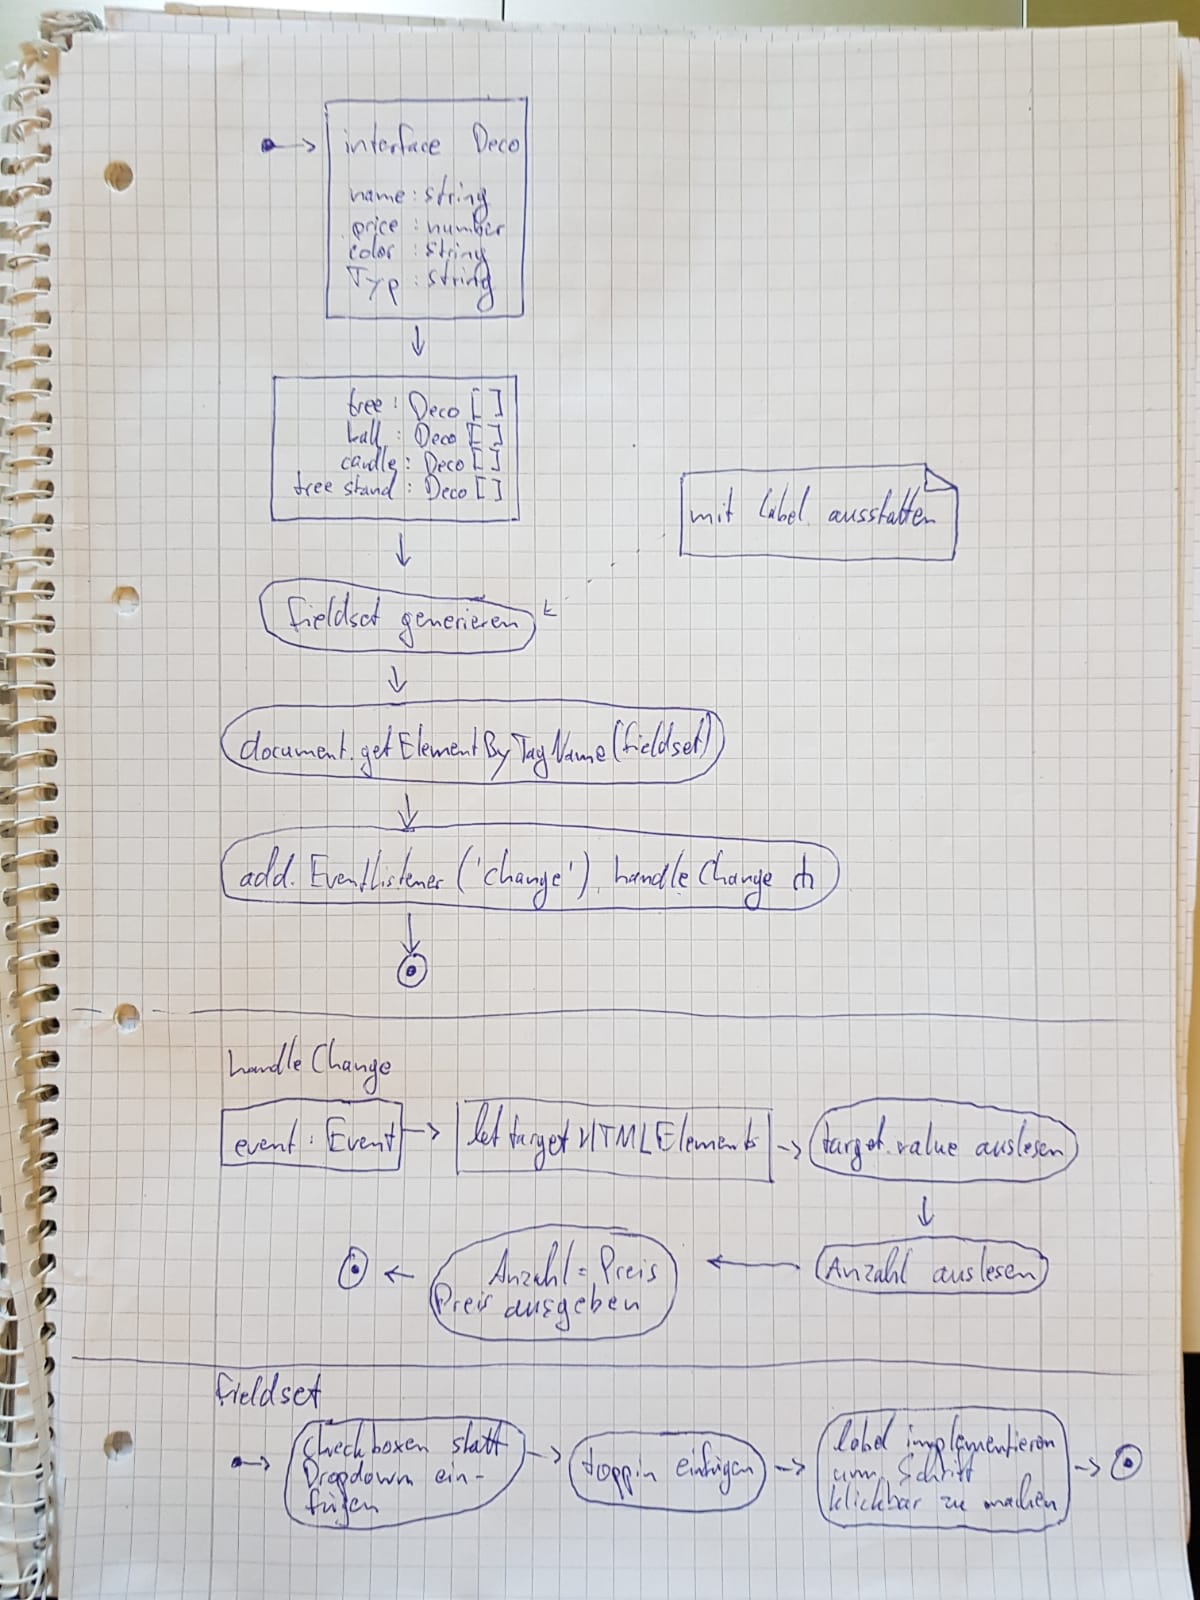 interface Deco
name : string
price : number
color : string
Typ : string
tree : Deco []
ball : Deco []
candle : Deco []
tree stand : Deco []
mit Label ausstatten
fieldset generieren
document.getElementByTagName(fieldset)
add.Eventlistener ('change') handleChange
handleChange
event : Event
let target HTMLElements
target.value auslesen
Anzahl auslesen
Anzahl = Preis
Preis ausgeben
fieldset
Checkboxen statt
Dropdown ein-
fügen
toppin einfügen
label implementieren
um Schrift
klickbar zu machen